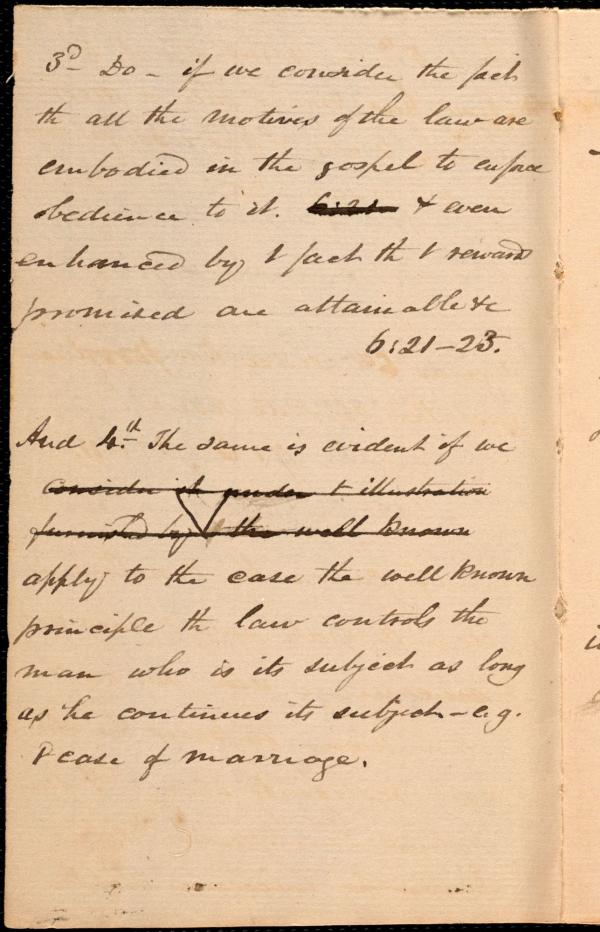 3d Do - if we consider the fact
th all the motives of the law are
embodied in the gospel to enforce
obedience to it. 6:21 & even
enhanced by t fact th t reward
promised are attainable &c
6:21-23.
And 4th. The same is evident if we
consider it under t illustration
furnished by the well known
apply to the case the well known
principle th law controls the
man who is its subject as long
as he continues its subject - e.g.
t case of marriage.